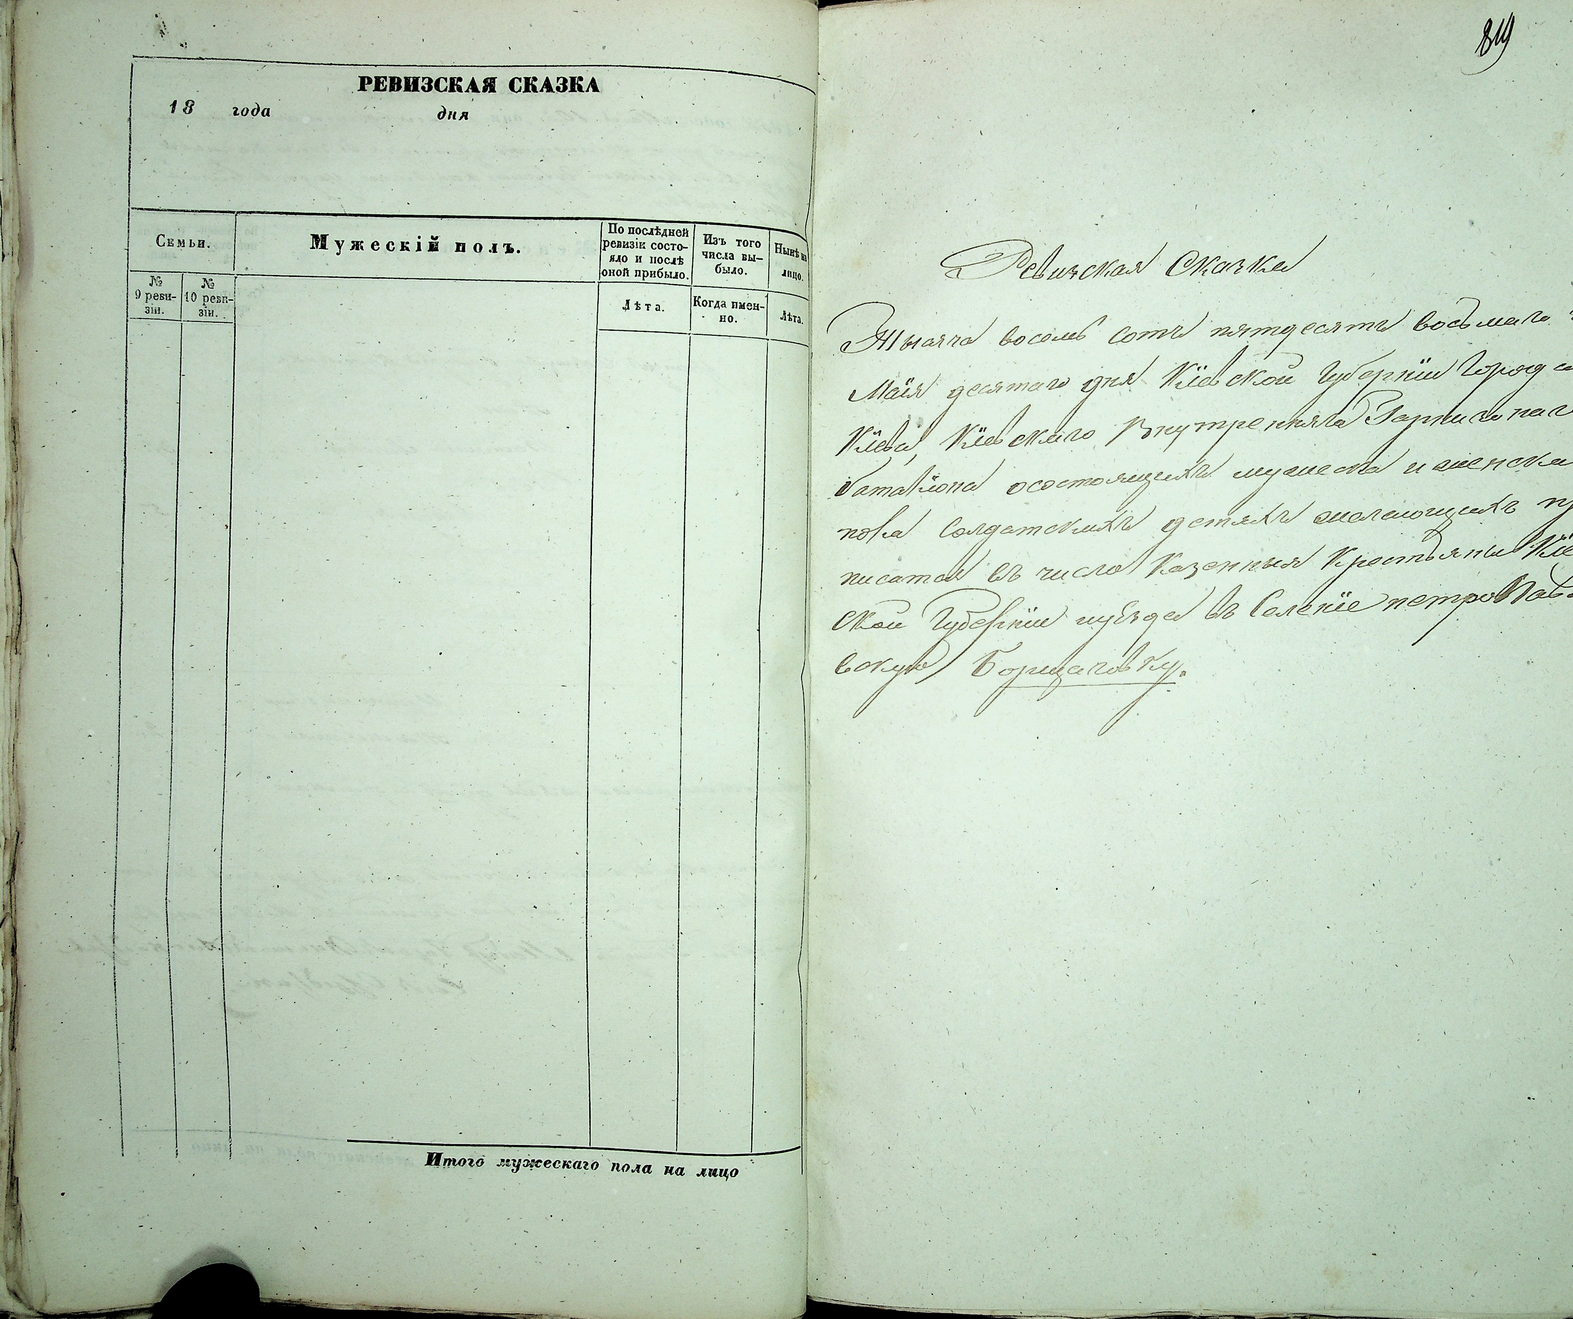 РЕВИЗСКАЯ СКАЗКА
18 года дня
Семьи.
Мужескій полъ.
По послѣдней ревизіи состояло и послѣ оной прибыло.
Изъ того числа вы-было.
Нынѣ на лицо.
№ 9 реви-зіи.
№ 10 реви-зіи.
Лѣта.
Когда имен-но.
Лѣта.
Итого мужескаго пола на лицо
819
Ревизская Сказка
Тысяча восемь сотъ пятдесятъ восьмаго
Маія десятаго дня Кіевской Губерніи Города
Кіева, Кіевскаго Внутренняга Гарнизоннаг
Баталіона осостоящихъ мужеска и женска
пола солдатскихъ детяхъ желающихъ пр
писатся въ число Казенныя Крестьяны Кіе
ской Губерніи иуѣзда въ Селеніе петроПав
вскую Борщаговку.